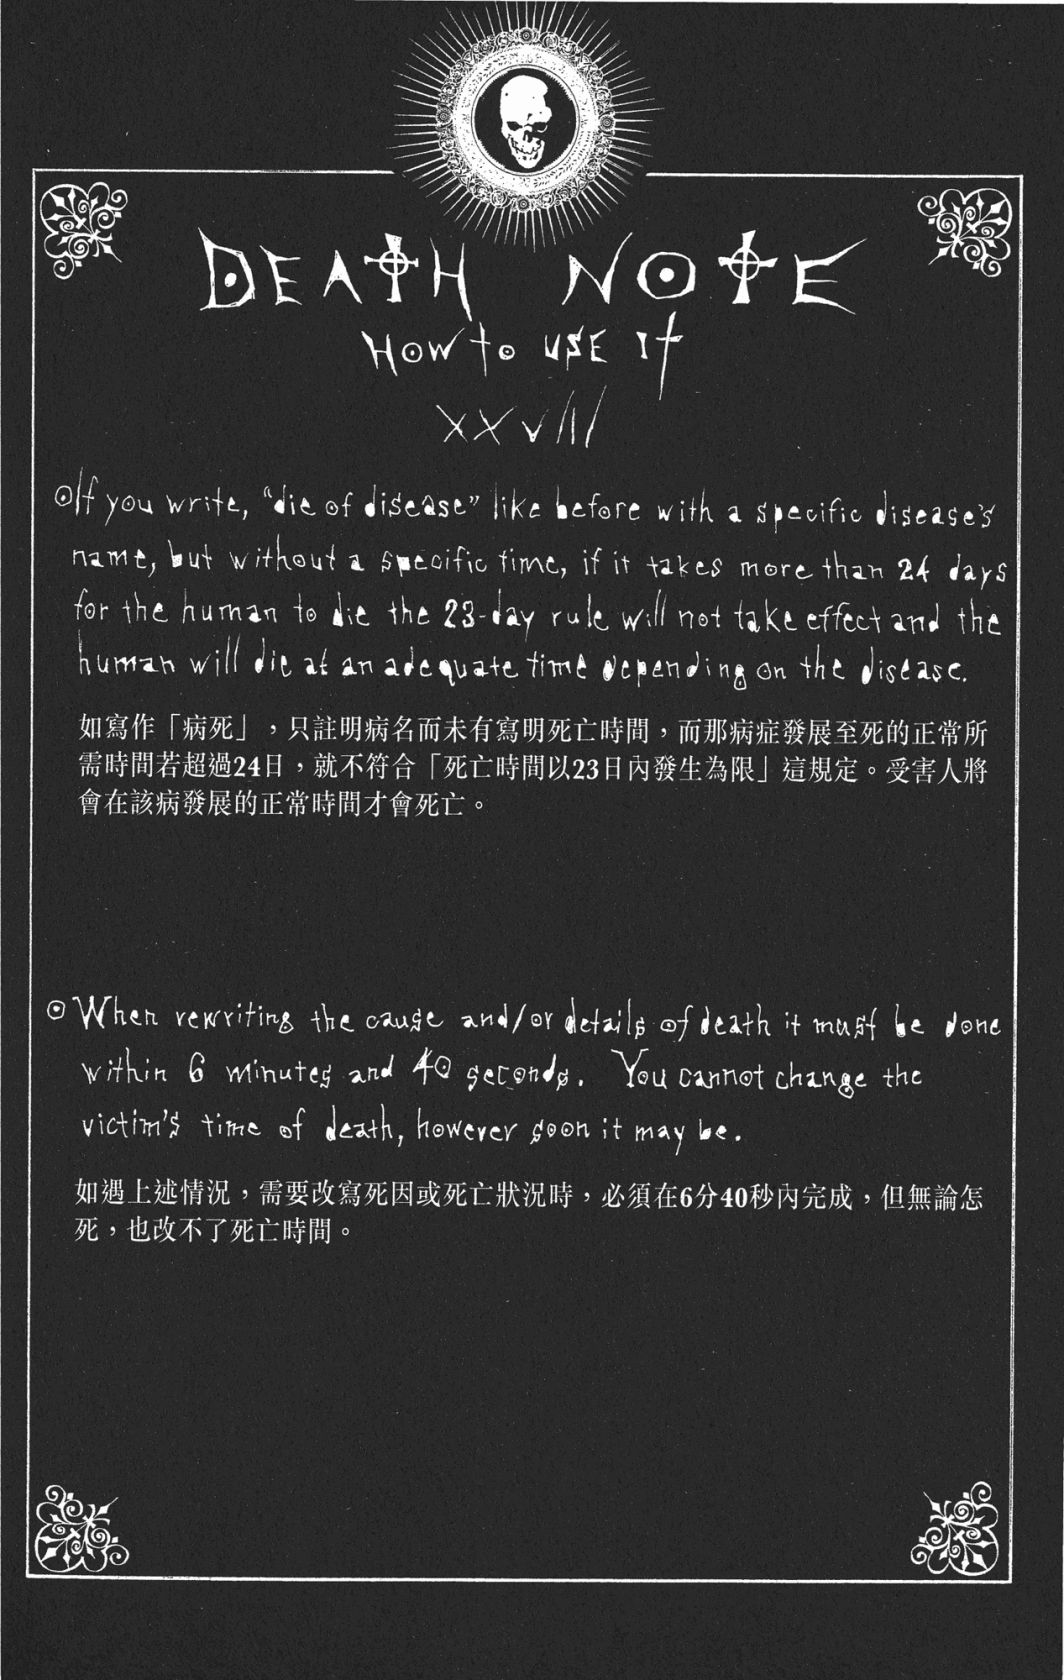 DEATH NOTE
HOW to USE It
XXVIII
If you write, "die of disease" like before with a specific disease's
name, but without a specific time, if it takes more than 24 days
for the human to die the 23-day rule will not take effect and the
human will die at an adequate time depending on the disease.
如寫作「病死」，只註明病名而未有寫明死亡時間，而那病症發展至死的正常所
需時間若超過24日，就不符合「死亡時間以23日內發生為限」這規定。受害人將
會在該病發展的正常時間才會死亡。
When rewriting the cause and/or details of death it must be done
within 6 minutes and 40 seconds. You cannot change the
victim's time of death, however soon it may be.
如遇上述情況，需要改寫死因或死亡狀況時，必須在6分40秒內完成，但無論怎
死，也改不了死亡時間。